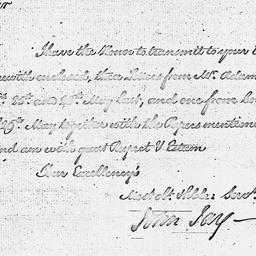 I have the Honor to transmit to your
with enclosed, three Letters from Mr. Adam
25th. and 28th. May last, and one from
25th. May together with the Papers mentione
and am with great Respect & Esteem
Your Excellency's
Most Obt. Hble. Servt.
John Jay